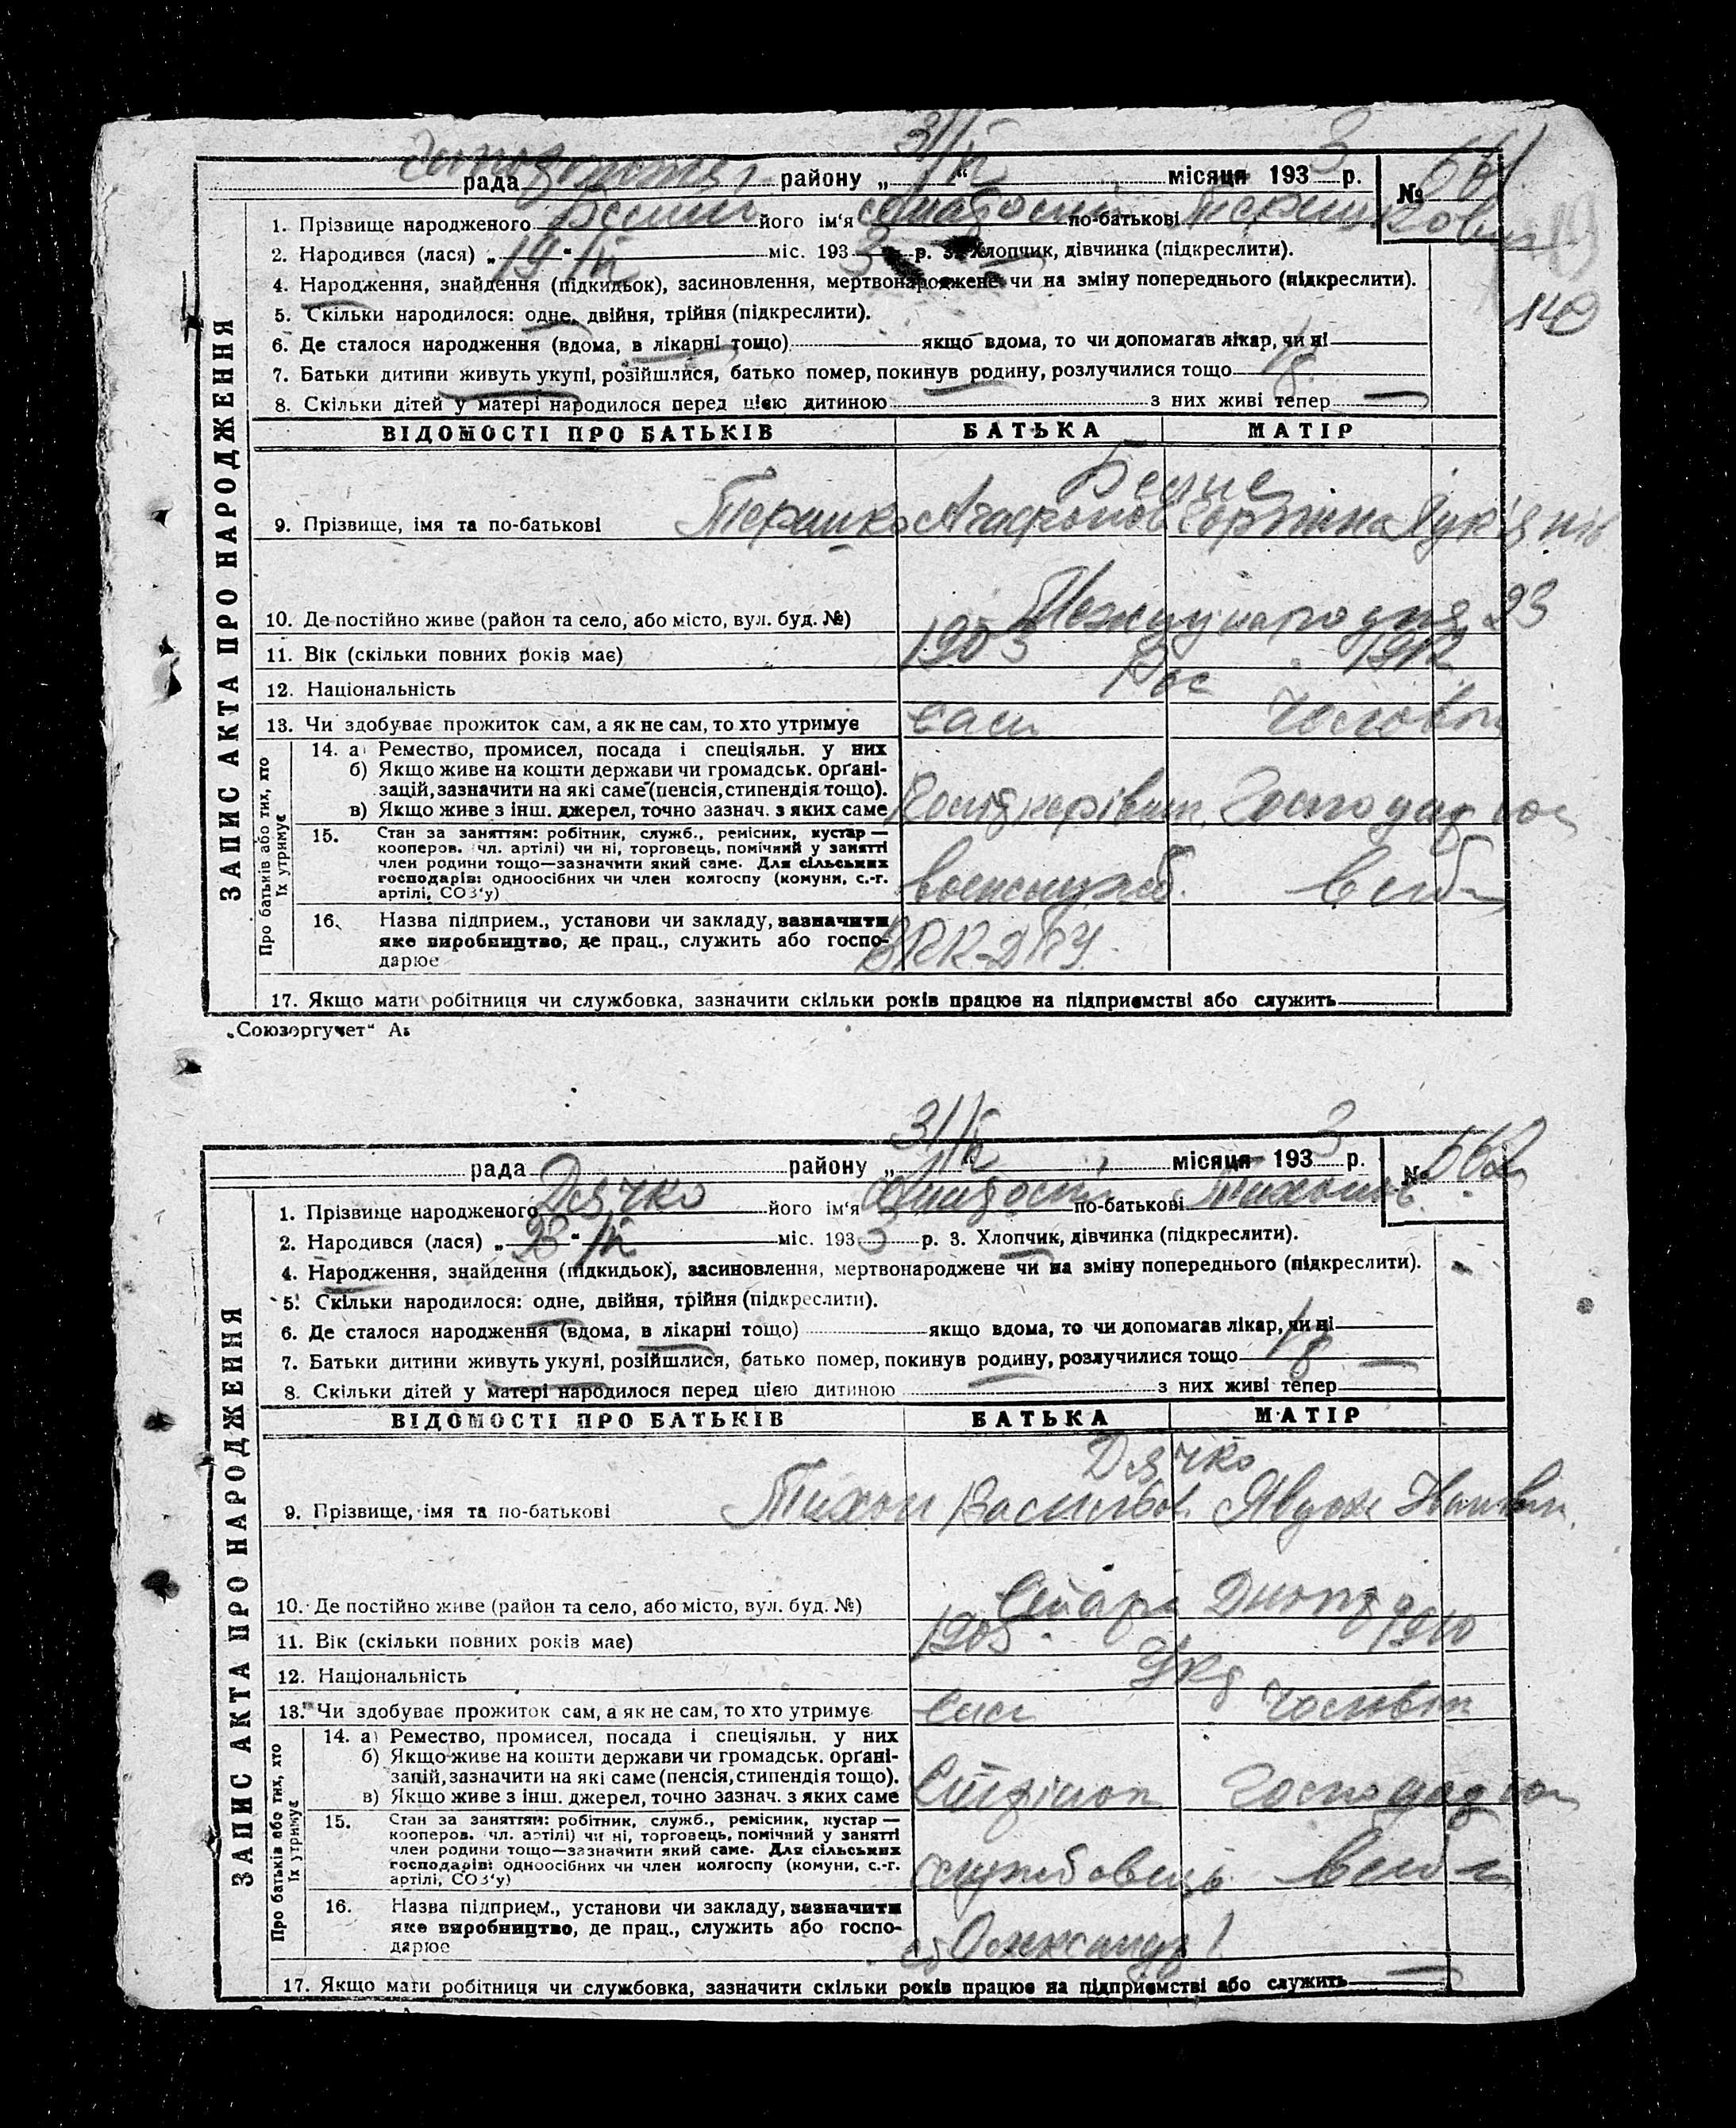 31/ІV 3
рада району „ “ місяця 193 р. № 661
1. Прізвище народженого його ім‘я по-батькові
2. Народився (лася) „19“ /ІV міс. 1933 р. 3. Хлопчик, дівчинка (підкреслити).
4. Народження, знайдення (підкидьок), засиновлення, мертвонароджене чи на зміну попереднього (підкреслити).
140
5. Скільки народилося: одне, двійня, трійня (підкреслити).
6. Де сталося народження (вдома, в лікарні тощо) якщо вдома, то чи допомагав лікар, чи ні
7. Батьки дитини живуть укупі, розійшлися, батько помер, покинув родину, розлучилися тощо
8. Скільки дітей у матері народилося перед цією дитиною з них живі тепер —
ЗАПИС АКТА ПРО НАРОДЖЕННЯ
ВІДОМОСТІ ПРО БАТЬКІВ БАТЬКА МАТІР
9. Прізвище, імя та по-батькові
10. Де постійно живе (район та село, або місто, вул. буд. №) 23
11. Вік (скільки повних років має) 1903 1912
12. Національність Рос
13. Чи здобуває прожиток сам, а як не сам, то хто утримує сам чоловік
Про батьків або тих, хто їх утримує
14. а) Ремество, промисел, посада і спеціяльн. у них
б) Якщо живе на кошти держави чи громадськ. органі-
зацій, зазначити на які саме (пенсія, стипендія тощо).
в) Якщо живе з інш. джерел, точно зазнач. з яких саме
15. Стан за заняттям: робітник, служб., ремісник, кустар —
кооперов. чл. артілі) чи ні, торговець, помічний у занятті
член родини тощо—зазначити який саме. Для сільських
господарів: одноосібних чи член колгоспу (комуни, с.-г.
артілі, СОЗ‘у)
16. Назва підприєм., установи чи закладу, зазначити
яке виробництво, де прац., служить або госпо-
дарює
17. Якщо мати робітниця чи службовка, зазначити скільки років працює на підприємстві або служить
„Союзоргучет“
31/ІV 3
рада району „ “ місяця 193 р. № 662
1. Прізвище народженого Дячко його ім‘я по-батькові
2. Народився (лася) „ “ /ІV міс. 1933 р. 3. Хлопчик, дівчинка (підкреслити).
4. Народження, знайдення (підкидьок), засиновлення, мертвонароджене чи на зміну попереднього (підкреслити).
5. Скільки народилося: одне, двійня, трійня (підкреслити).
6. Де сталося народження (вдома, в лікарні тощо) якщо вдома, то чи допомагав лікар, чи ні
7. Батьки дитини живуть укупі, розійшлися, батько помер, покинув родину, розлучилися тощо —
8. Скільки дітей у матері народилося перед цією дитиною з них живі тепер
ЗАПИС АКТА ПРО НАРОДЖЕННЯ
ВІДОМОСТІ ПРО БАТЬКІВ БАТЬКА МАТІР
Дячко
9. Прізвище, імя та по-батькові Тихон Васильов.
10. Де постійно живе (район та село, або місто, вул. буд. №)
11. Вік (скільки повних років має) 1905 1910
12. Національність Укр
13. Чи здобуває прожиток сам, а як не сам, то хто утримує сам чоловік
Про батьків або тих, хто їх утримує
14. а) Ремество, промисел, посада і спеціяльн. у них
б) Якщо живе на кошти держави чи громадськ. органі-
зацій, зазначити на які саме (пенсія, стипендія тощо).
в) Якщо живе з інш. джерел, точно зазнач. з яких саме
15. Стан за заняттям: робітник, служб., ремісник, кустар —
кооперов. чл. артілі) чи ні, торговець, помічний у занятті
член родини тощо—зазначити який саме. Для сільських
господарів: одноосібних чи член колгоспу (комуни, с.-г.
артілі, СОЗ‘у) службовець
16. Назва підприєм., установи чи закладу, зазначити
яке виробництво, де прац., служить або госпо-
дарює
17. Якщо мати робітниця чи службовка, зазначити скільки років працює на підприємстві або служить —